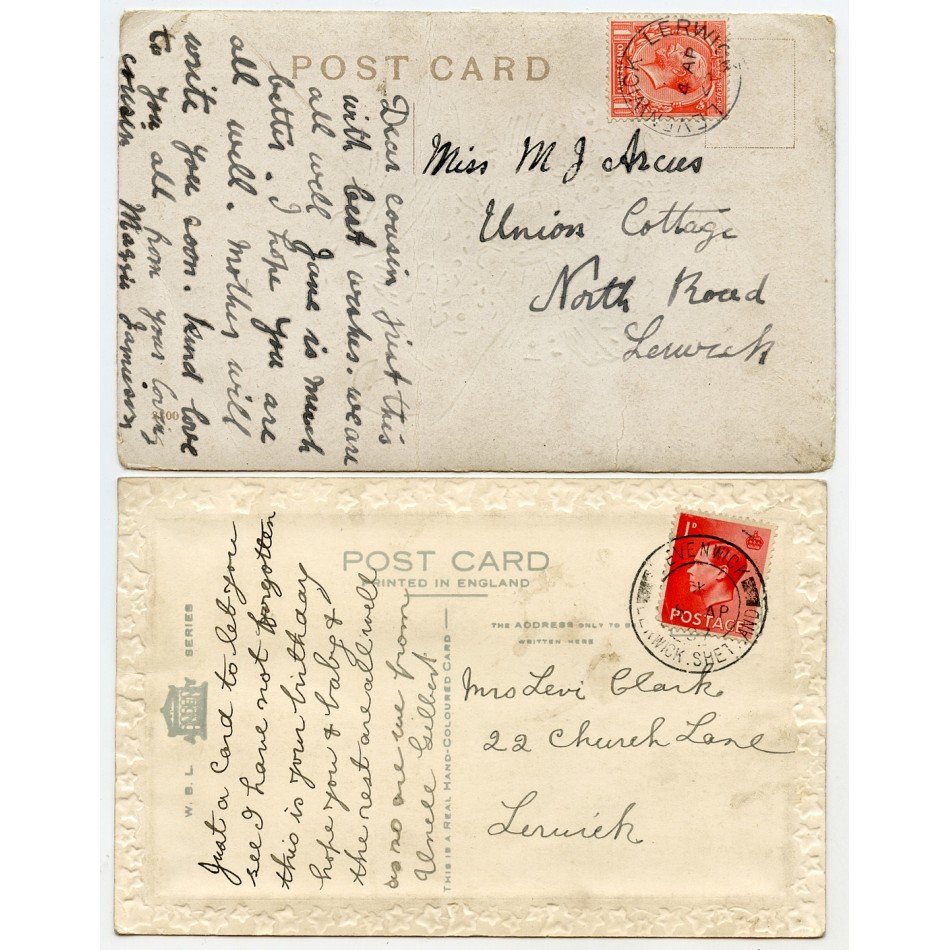 POST CARD
LERWICK
4 AP
LEVENWICK
Dear cousin just this
with best wishes. we are
all well Jane is much
better. I hope you are
all well. Mother will
write you soon. kind love
to you all from your loving
cousin Maggie Jamieson
Miss M J Arcus
Union Cottage
North Road
Lerwick
POST CARD
PRINTED IN ENGLAND
1D
POSTAGE
LEVENWICK
AP
LERWICK. SHETLAND
THE ADDRESS ONLY TO BE
WRITTEN HERE
W. B. L SERIES
THIS IS A REAL HAND-COLOURED CARD
Just a Card to let you
see I have not forgotten
this is your birthday
hope you & baby &
the rest are all well
as so are we from
Uncle Gilbert.
Mrs Levi Clark
22 Church Lane
Lerwick